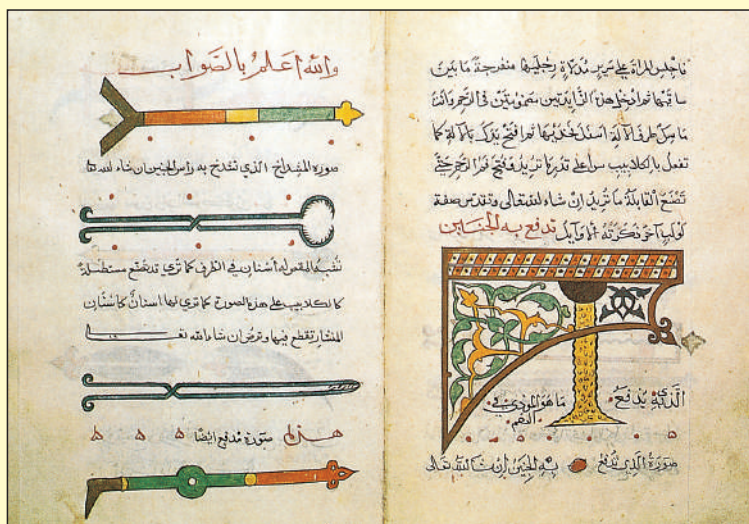 فاجلس المراة على سرير مدلاة رجليها منفرجة ما بين
ساقيها ثم ادخل هذه الزايدتين مضمومتين في الرحم وانت
ماسك طرف الآلة اسفل فخذيها ثم افتح يدك بالآلة كما
تفعل بالكلاليب سوا على قدر ما تريد فتح فم الرحم حتى
تصنع القابلة ما تريد ان شاء الله تعالى وتقدس صفة
لولب آخر ذكرته الاوايل تدفع به الجنين
الذي يدفع ما هو المودي في
الفم
صورة الذي تدفع به الجنين ان شا الله تعالى
والله اعلم بالصواب
صورة المشداخ الذي تشدخ به راس الجنين ان شاء الله
تشبه المقص له اسنان في الطرف كما تري قد تصنع مستطيلة
كالكلاليب على هذه الصورة كما تري لها اسنان كاسنان
المنشار تقطع فيها وترض ان شاء الله تعالى
صورة مدفع ايضا ه ه ه